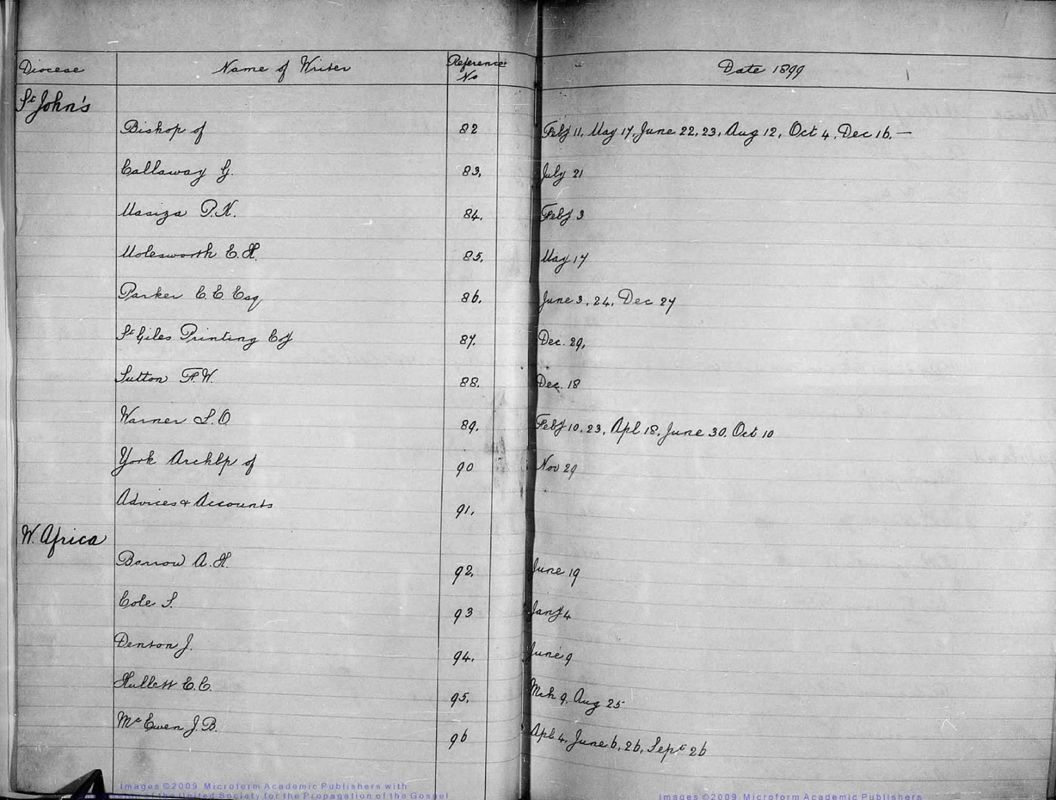 Diocese Name of Writer Reference No Date 1899
St John's
Bishop of 82 Feby 11, May 17, June 22, 23, Aug 12, Oct 4, Dec 16, —
Callaway G. 83, July 21
Masiza P.K. 84, Feby 3
Molesworth E.H. 85, May 17
Parker C.E Esq 86, June 3, 24, Dec 27
St Giles Printing Coy 87, Dec. 29,
Sutton F.W. 88. Dec. 18
Warner S.O 89. Feby 10, 23, Apl 18, June 30, Oct 10
York Archbp of 90 Nov 29
Advices & Accounts 91,
W. Africa
Barrow A.H. 92, June 19
Cole S. 93 Jany 4
Denton J. 94. June 9
Hullett C.C. 95, Mch 9, Aug 25
McEwen J.B. 96 Apl 4, June 6, 26, Sept 26
Images ©2009 Microform Academic Publishers with
permission of the United Society for the Propagation of the Gospel
Images ©2009 Microform Academic Publishers